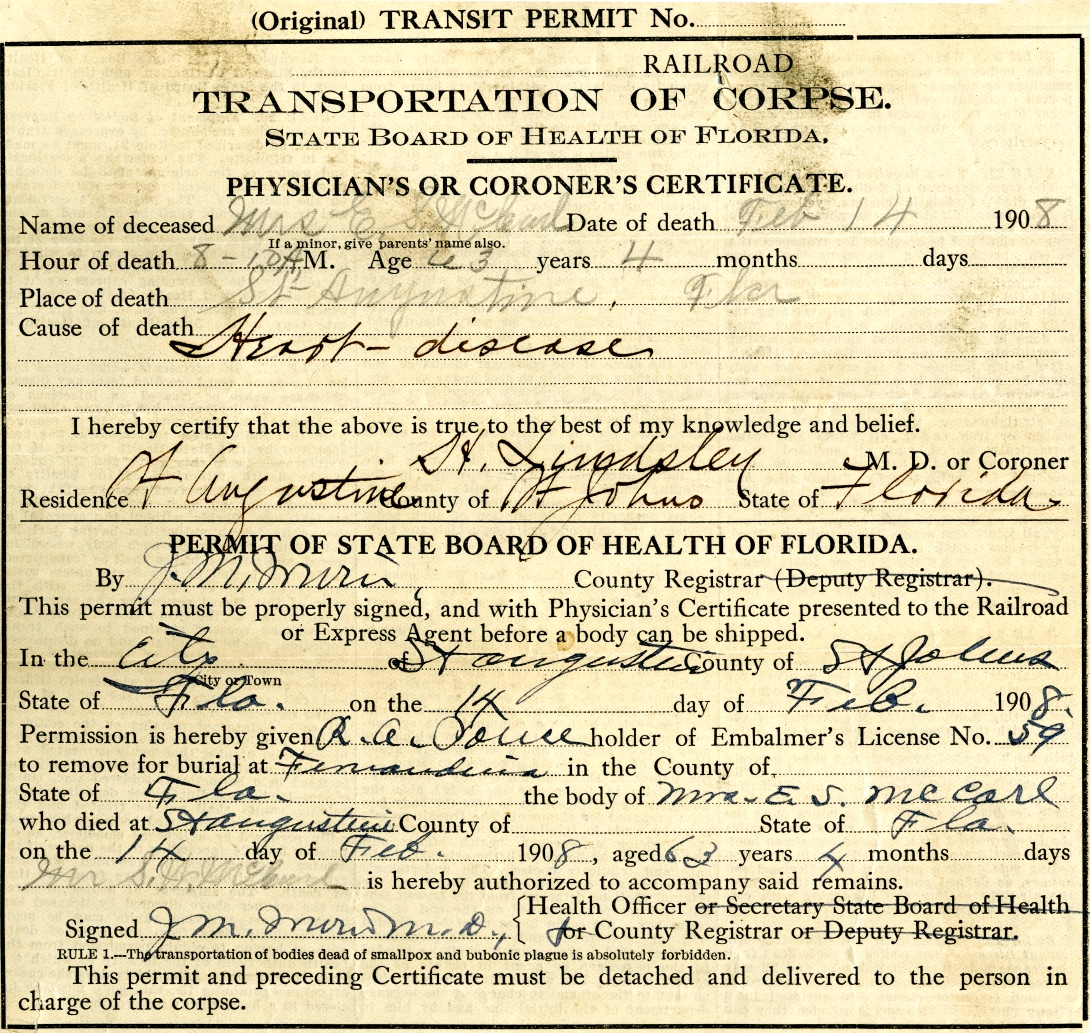 (Original) TRANSIT PERMIT No.
RAILROAD
TRANSPORTATION OF CORPSE.
STATE BOARD OF HEALTH OF FLORIDA.
PHYSICIAN'S OR CORONER'S CERTIFICATE.
Name of deceased Mrs E. Date of death Feb 14 1908
If a minor, give parents' name also.
Hour of death 8-10 AM. Age 63 years 4 months days
Place of death St Augustine, Fla
Cause of death
Heart disease
I hereby certify that the above is true to the best of my knowledge and belief.
Lindsley M. D. or Coroner
Residence St Augustine County of St Johns State of Florida
PERMIT OF STATE BOARD OF HEALTH OF FLORIDA.
By J. M. County Registrar (Deputy Registrar).
This permit must be properly signed, and with Physician's Certificate presented to the Railroad
or Express Agent before a body can be shipped.
In the City of St Augustine County of St Johns
City or Town
State of Fla. on the 14 day of Feb. 1908.
Permission is hereby given R. A. Ponce holder of Embalmer's License No. 59
to remove for burial at Fernandina in the County of
State of Fla. the body of Mrs. E. S. McCarl
who died at St Augustine County of State of Fla.
on the 14 day of Feb. 1908, aged 63 years 4 months days
is hereby authorized to accompany said remains.
Health Officer or Secretary State Board of Health
Signed J. M. M. D., for County Registrar or Deputy Registrar.
RULE 1.—The transportation of bodies dead of smallpox and bubonic plague is absolutely forbidden.
This permit and preceding Certificate must be detached and delivered to the person in
charge of the corpse.